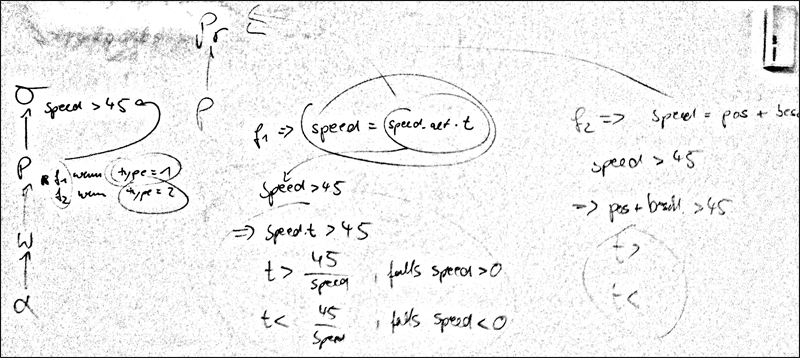 Pr
P
σ
speed > 45
P
f1 wenn type=1
f2 wenn type=2
W
α
f1 => speed = speed.alt · t
speed > 45
=> speed·t > 45
t > 45/speed , falls speed > 0
t < 45/speed , falls speed < 0
f2 => speed = pos + besc
speed > 45
=> pos + beschl > 45
t >
t <